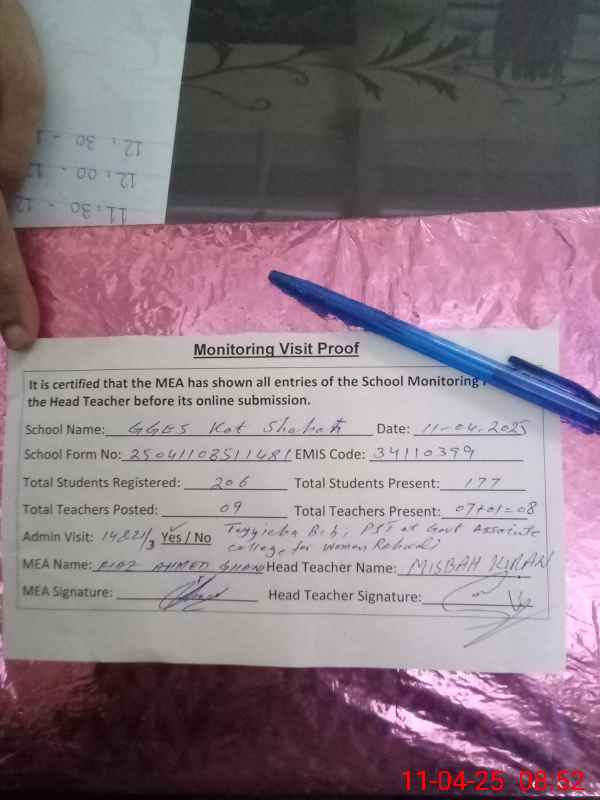 12:30 - 1
12:00 - 12
11:30 - 12
Monitoring Visit Proof
It is certified that the MEA has shown all entries of the School Monitoring
the Head Teacher before its online submission.
School Name: GGES Kot Date: 11-04-2025
School Form No: 25041108511481 EMIS Code: 34110399
Total Students Registered: 206 Total Students Present: 177
Total Teachers Posted: 09 Total Teachers Present: 07+01=08
Admin Visit: Yes / No Tayyieba Bibi, PST at Govt Associate
college for Women
MEA Name: RIAZ AHMED Head Teacher Name: MISBAH KIRAN
MEA Signature: Head Teacher Signature:
11-04-25 08:52